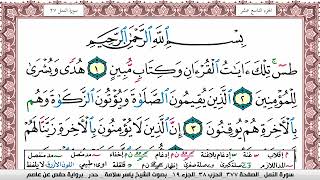 الجزء التاسع عشر
سورة النمل ٢٧
بِسْمِ اللَّهِ الرَّحْمَٰنِ الرَّحِيمِ
طسٓ تِلْكَ ءَايَٰتُ الْقُرْءَانِ وَكِتَابٍ مُّبِينٍ ١ هُدًى وَبُشْرَىٰ
لِلْمُؤْمِنِينَ ٢ الَّذِينَ يُقِيمُونَ الصَّلَوٰةَ وَيُؤْتُونَ الزَّكَوٰةَ وَهُم
بِالْءَاخِرَةِ هُمْ يُوقِنُونَ ٣ إِنَّ الَّذِينَ لَا يُؤْمِنُونَ بِالْءَاخِرَةِ زَيَّنَّا لَهُمْ
سورة النمل الصفحة ٣٧٧ الحزب ٣٨ الجزء ١٩ بصوت الشيخ ياسر سلامة حدر برواية حفص عن عاصم